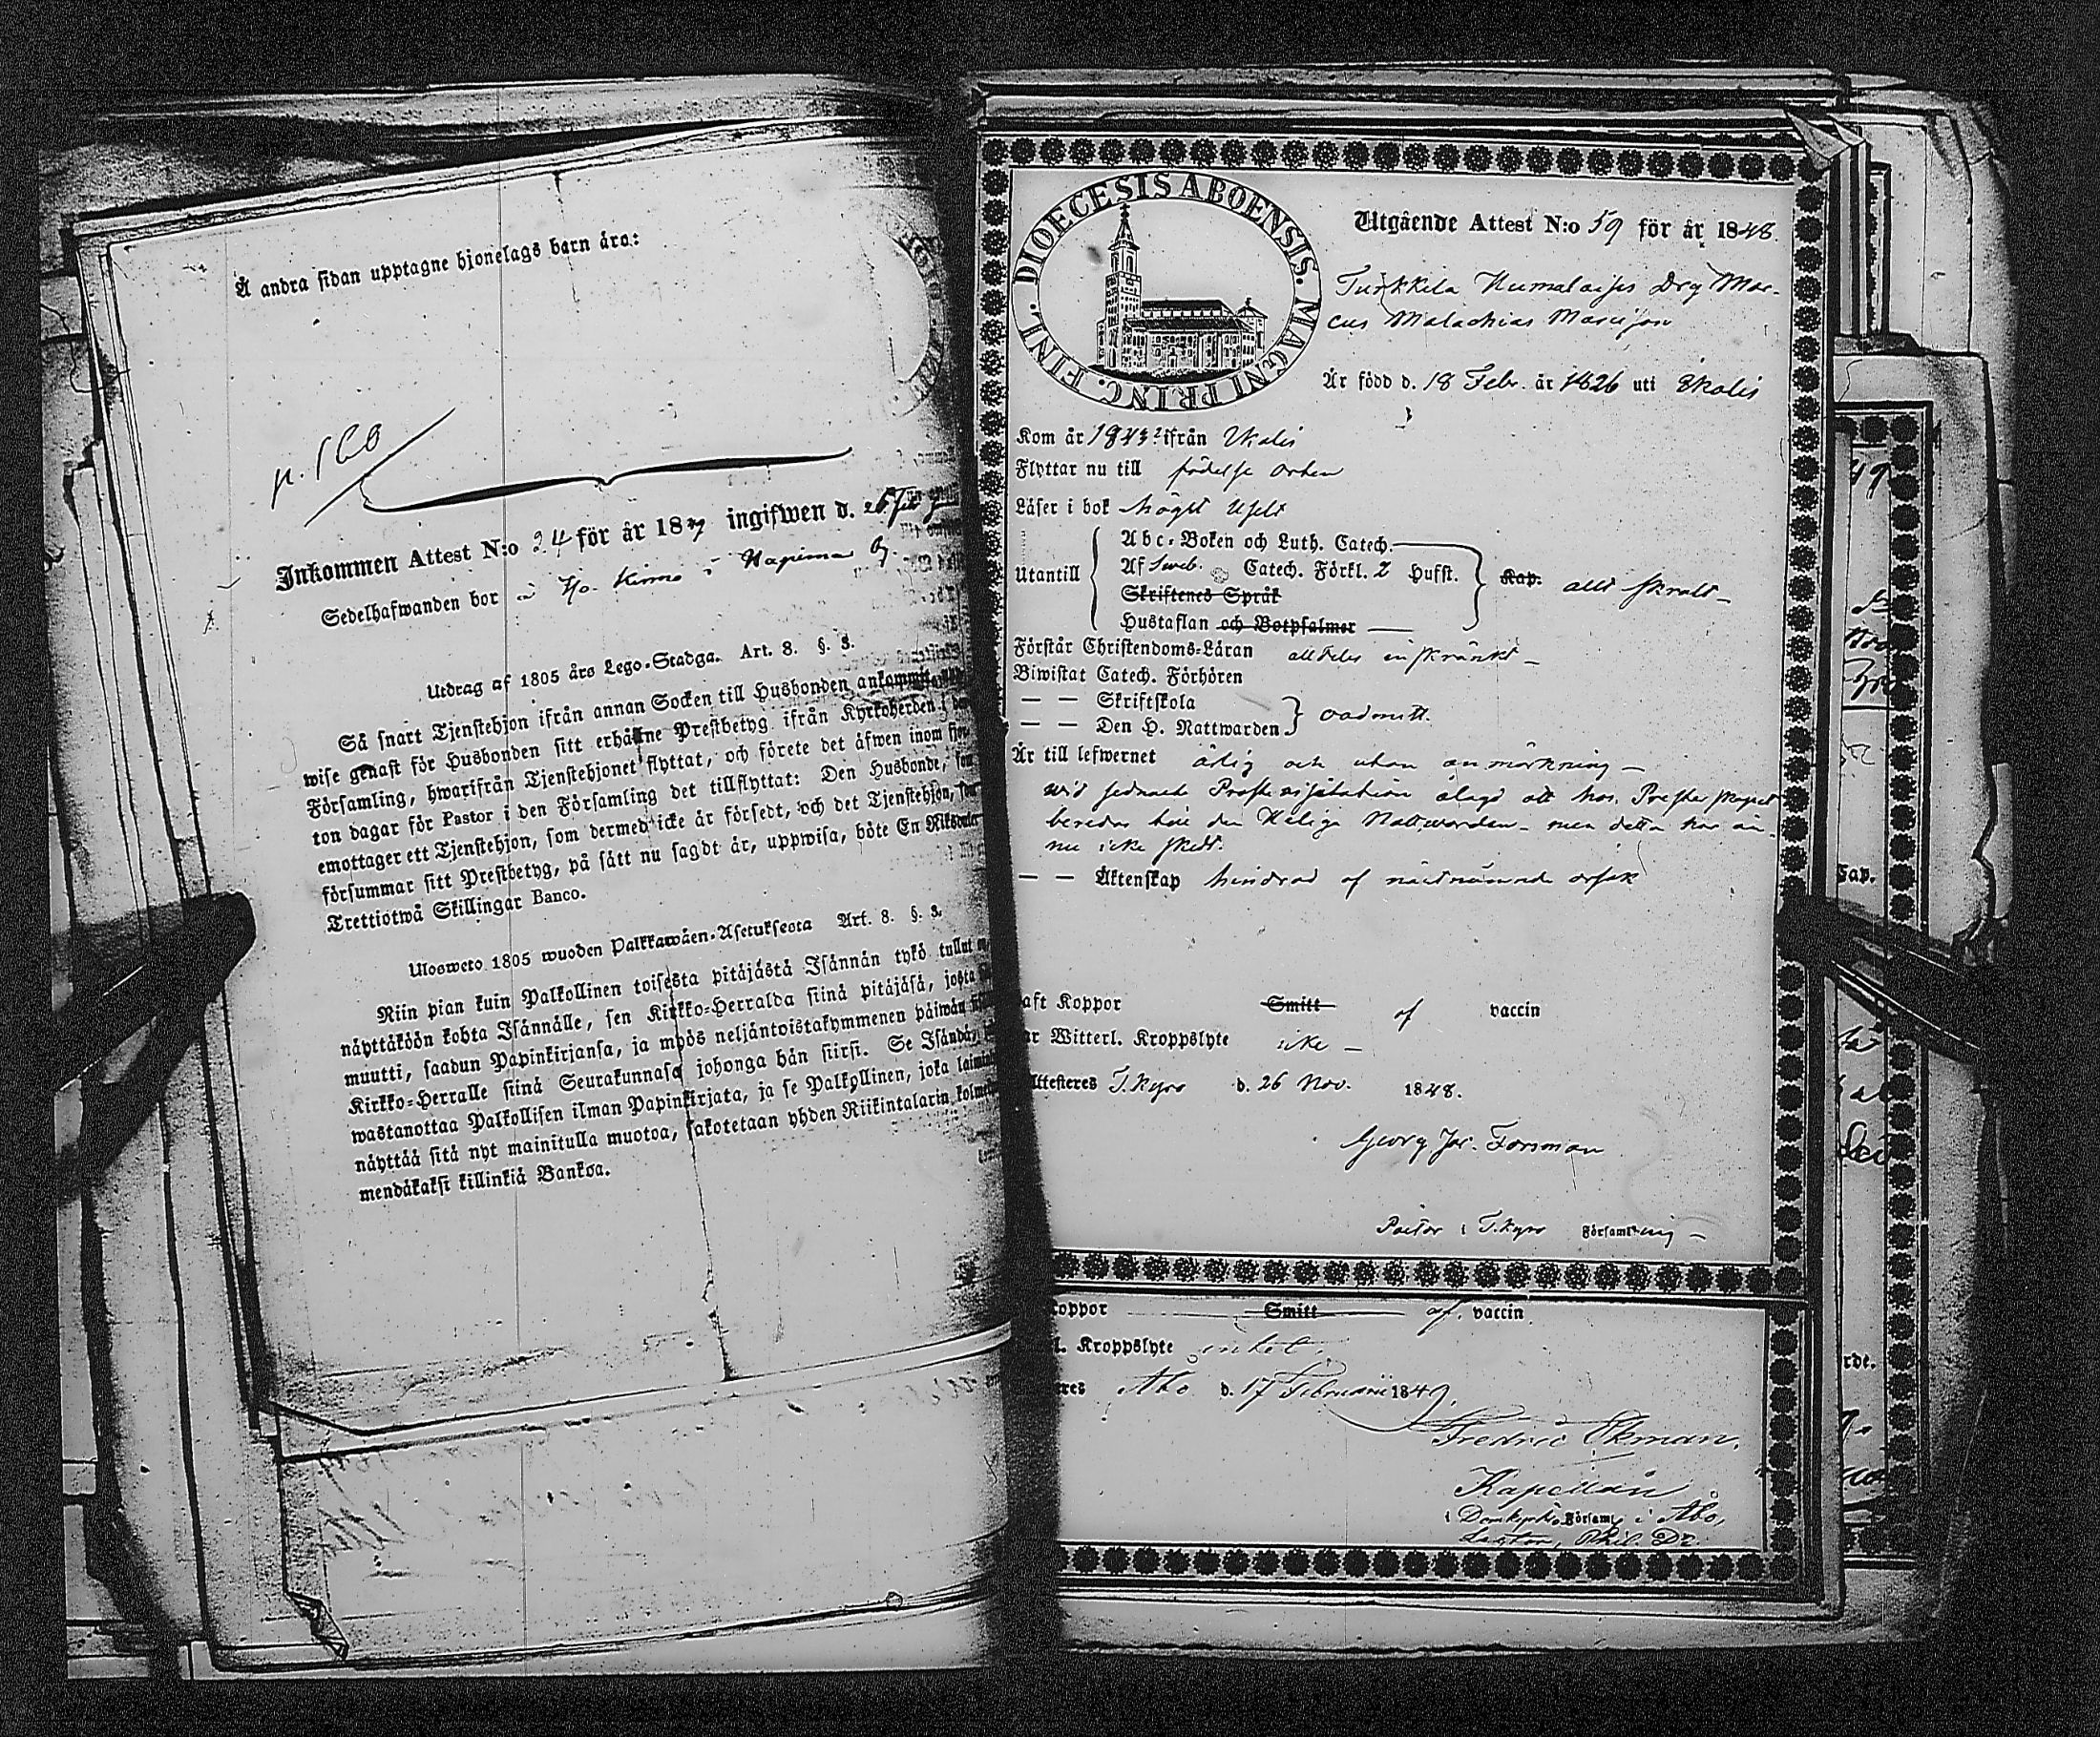 Å andra sidan upptagne hjonelags barn äro:
Inkommen Attest N:o 24 för år 18 ingifwen d.
Sedelhafwanden bor å
Utdrag af 1805 års Lego-Stadga. Art. 8. §. 3.
Så snart Tjenstehjon ifrån annan Socken till Husbonden ankommit,
wise genast för Husbonden sitt erhållne Prestbetyg ifrån Kyrkoherden i den
Församling, hwarifrån Tjenstehjonet flyttat, och förete det äfwen inom fjor-
ton dagar för Pastor i den Församling det tillflyttat: Den Husbonde, som
emottager ett Tjenstehjon, som dermed icke är försedt, och det Tjenstehjon, som
försummar sitt Prestbetyg, på sätt nu sagdt är, uppwisa, böte En Riksdaler
Trettiotwå Skillingar Banco.
Ulosweto 1805 wuoden Palkkawäen-Asetuksesta Art. 8. §. 3.
Niin pian kuin Palkollinen toisesta pitäjästä Isännän tykö tullut on,
näyttäköön kohta Isännälle, sen Kirkko-Herralda siinä pitäjäsä, josta
muutti, saadun Papinkirjansa, ja myös neljäntoistakymmenen päiwän
Kirkko-Herralle siinä Seurakunnasa johonga hän siirsi. Se Isändä,
wastanottaa Palkollisen ilman Papinkirjata, ja se Palkollinen, joka
näyttää sitä nyt mainitulla muotoa, sakotetaan yhden Riikintalarin kolme
mendäkaksi killinkiä Bankoa.
DIOECESIS ABOENSIS. MAGNI PRINC. FINL.
Utgående Attest N:o 59 för år 1848.
Turkkila Humalaisis Drg Mar-
cus Malachias
Är född d. 18 Febr. år 1826 uti Ikalis
Kom år 1843 ifrån Ikalis
Flyttar nu till födelse orten
Läser i bok högst uselt
Utantill
Abc-Boken och Luth. Catech.
Af Sweb. Catech. Förkl. 2 Hufst.
Skriftenes Språk
Hustaflan och Botpsalmer
Kap. allt skralt
Förstår Christendoms-Läran alldeles inskränkt
Biwistat Catech. Förhören
— — Skriftskola
— — Den H. Nattwarden oadmitt.
Är till lefwernet ärlig och utan anmärkning
wid sednaste ålagd att hos Presterskapet
beredas till den Heliga Nattwarden - men detta har än-
nu icke skedt.
— — Äktenskap hindrad af näst nämnde orsak
aft Koppor Smitt af vaccin
ar Witterl. Kroppslyte icke
Attesteres T.kyro d. 26 Nov. 1848.
Georg Jac. Forsman
Pastor i T.kyro Församling
oppor Smitt af. vaccin
l. Kroppslyte intet
res Åbo d. 17 Februarii 1849.
Fredric Ekman.
Kapellan
i Domkyrko Församl i Åbo,
Phil. Dr.
Cap.
rdt.